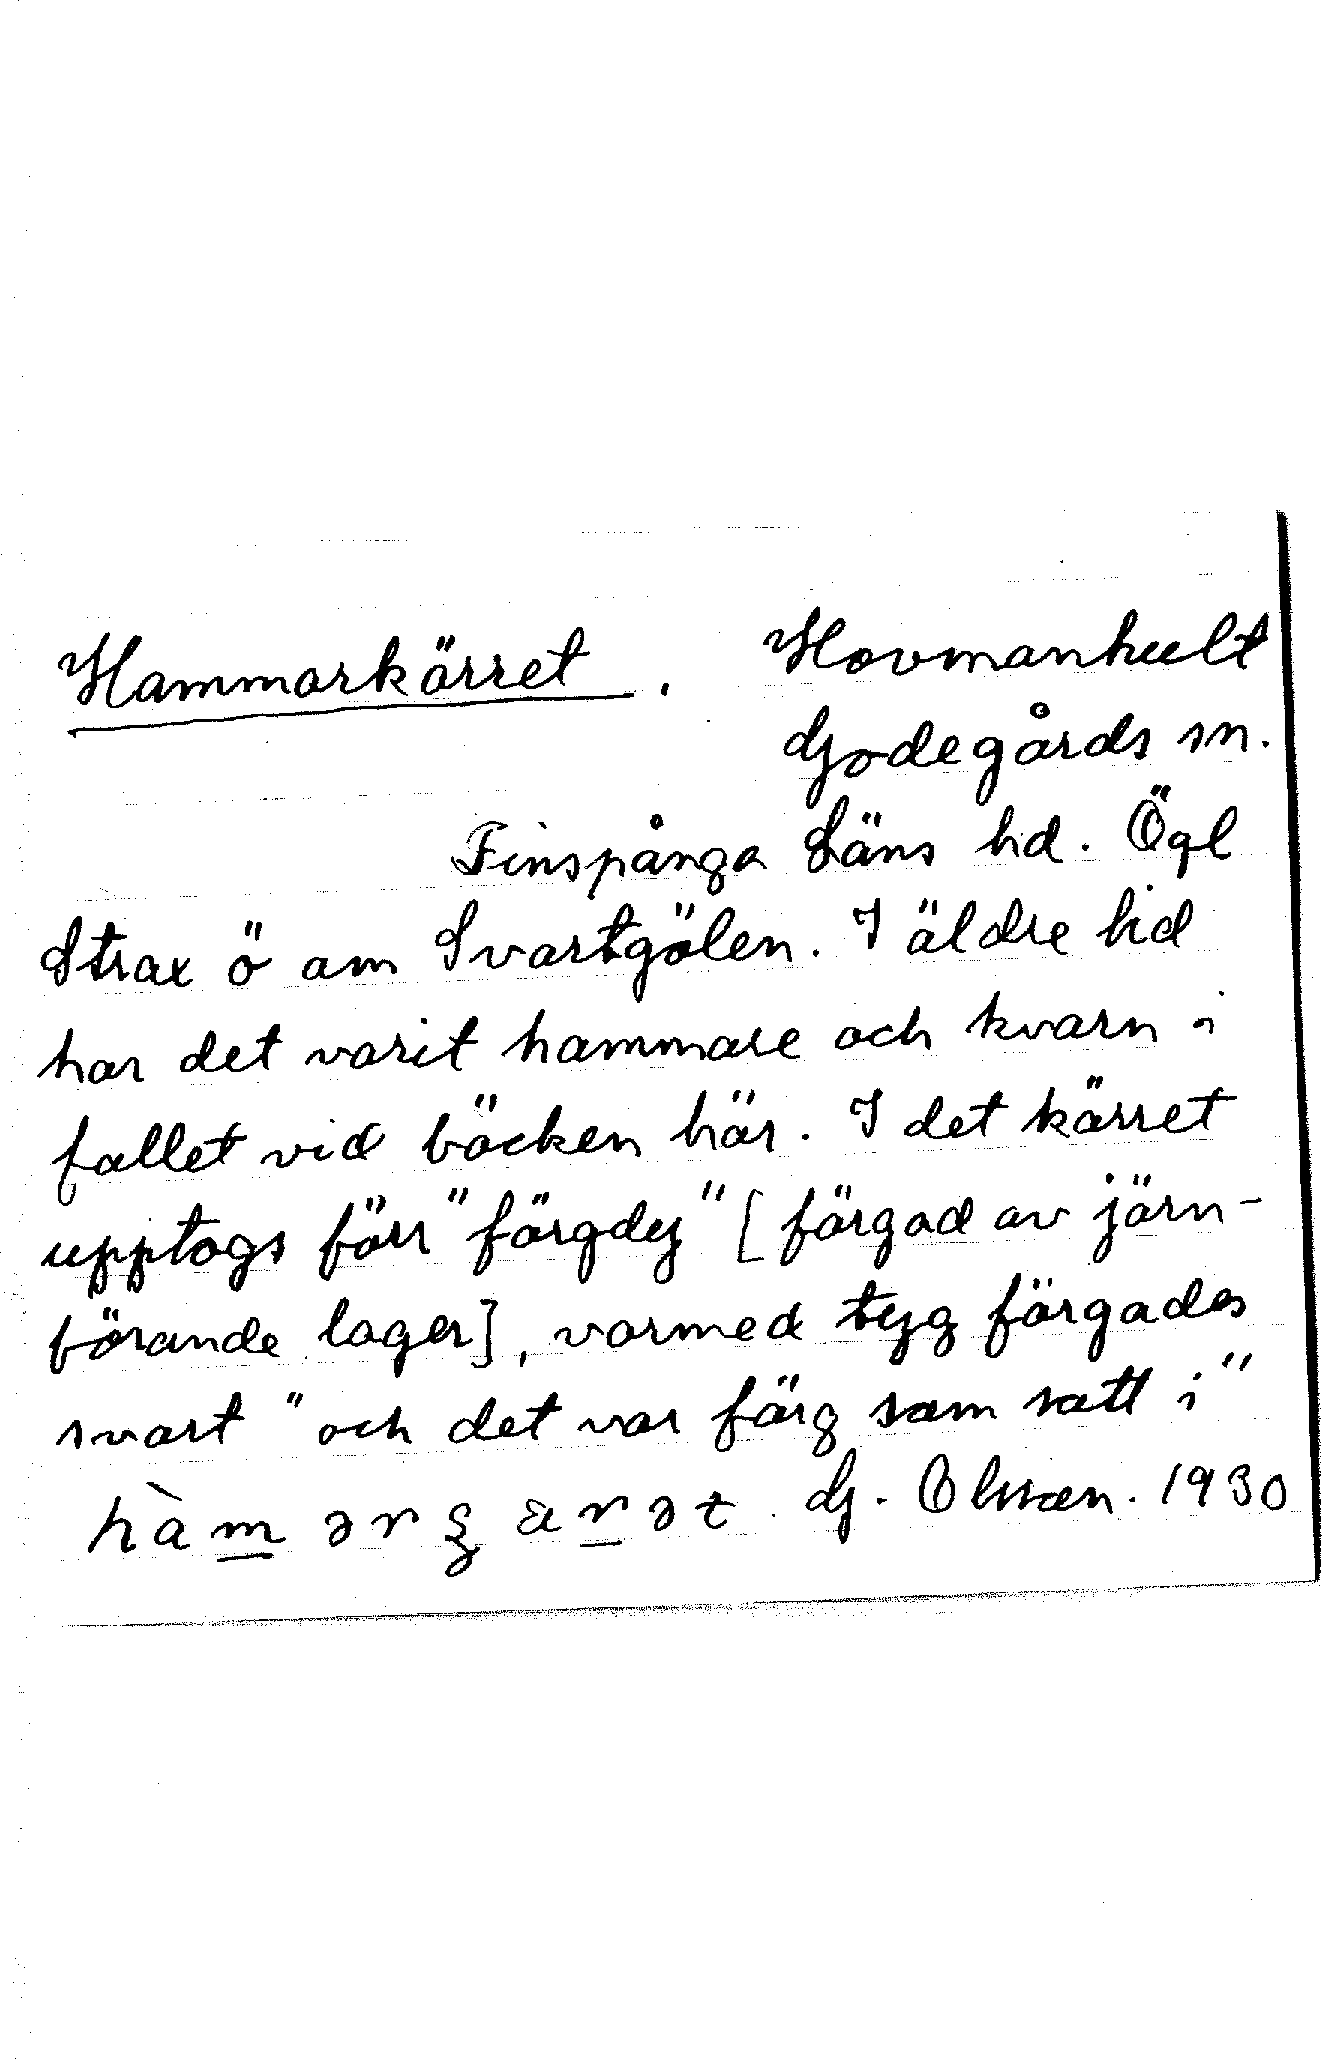 Hammarkärret. Hovmanhult
Godegårds sn.
Finspånga Läns hd. Ögl
Strax ö om Svartgölen. I äldre tid
har det varit hammare och kvarn i
fallet vid bäcken här. I det kärret
upptogs förr "färgdy" [färgad av järn-
förande lager], varmed tyg färgades
svart "och det var färg som satt i"
hàmərʂärət G. Olsson. 1930